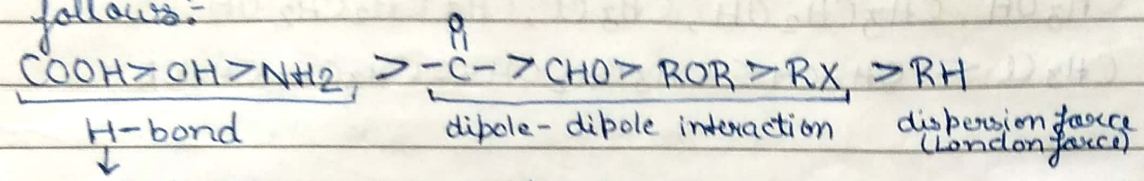 follows:-
O
COOH > OH > NH2 > -C- > CHO > ROR > RX > RH
H-bond dipole-dipole interaction dispersion force
(London force)